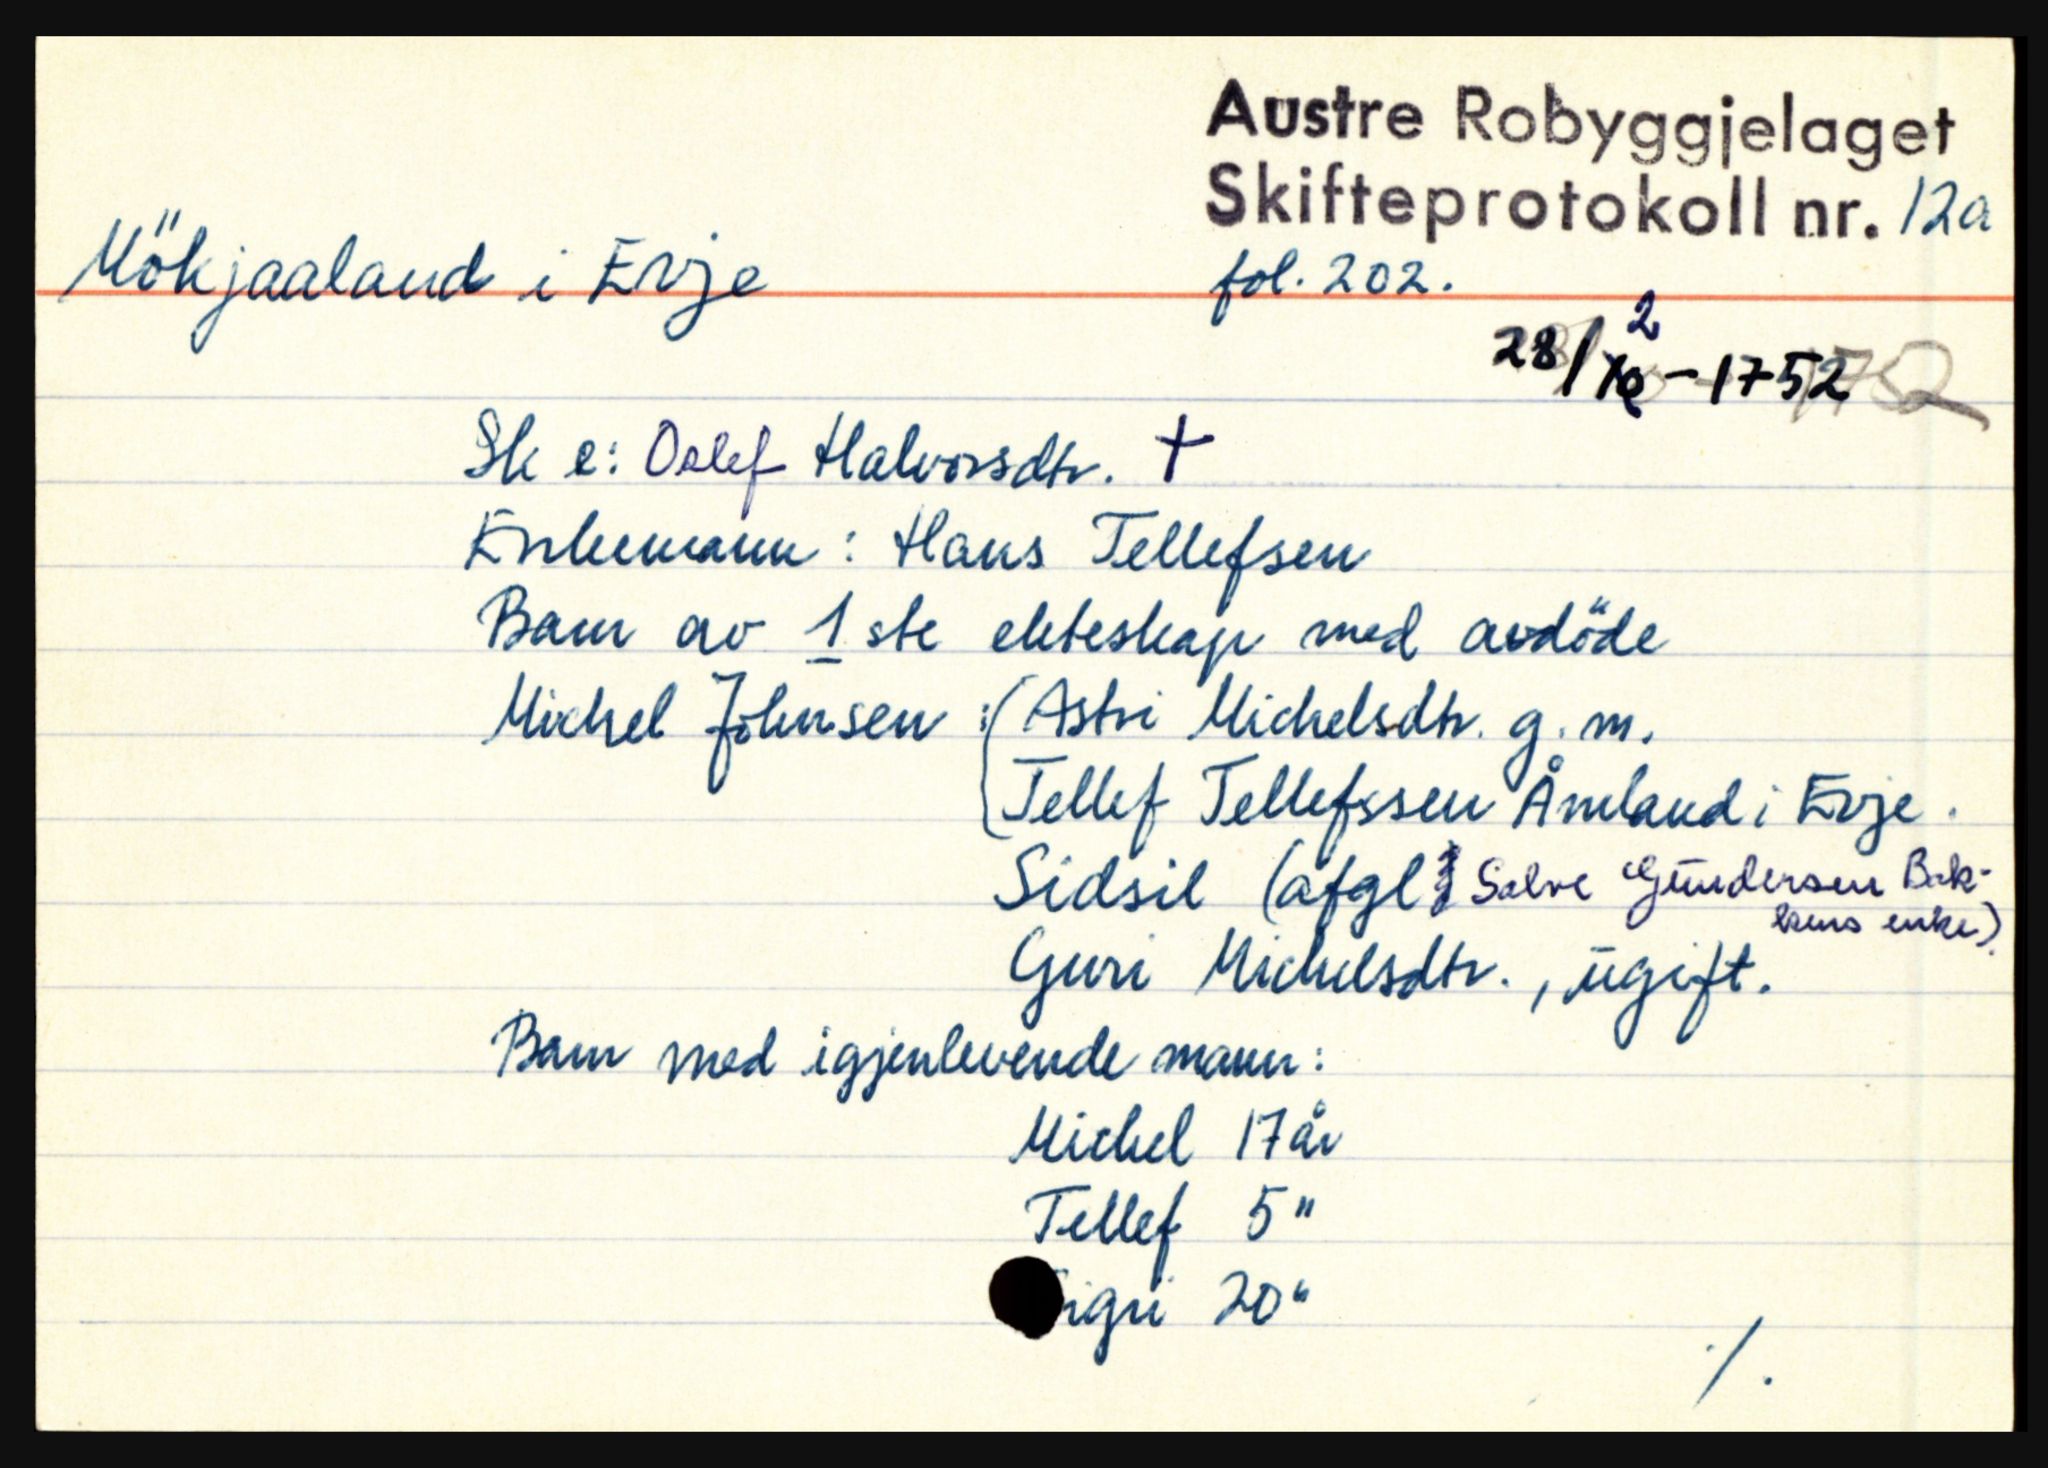 Austre Robyggjelaget
Skifteprotokoll nr. 12a
Mökjaaland i Evje fol. 202.
28/2-1752
Sk e: Oslef Halvorsdtr. †
Enkemann: Hans Tellefsen
Barn av 1 ste ekteskap med avdöde
Michel Johnsen : (Astri Michelsdtr. g. m.
Tellef Tellefssen Åmland i Evje.
Sidsil (afgl Salve Gundersen Bak-
kens enke).
Guri Michelsdtr., ugift.
Barn med igjenlevende mann:
Michel 17 år
Tellef 5 "
igri 20 "
./.